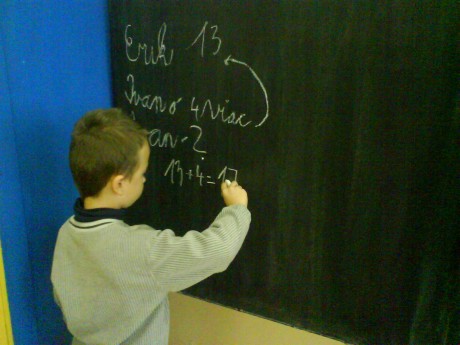 Erik 13
Ivan o 4 viac
Ivan - ?
13+4=17